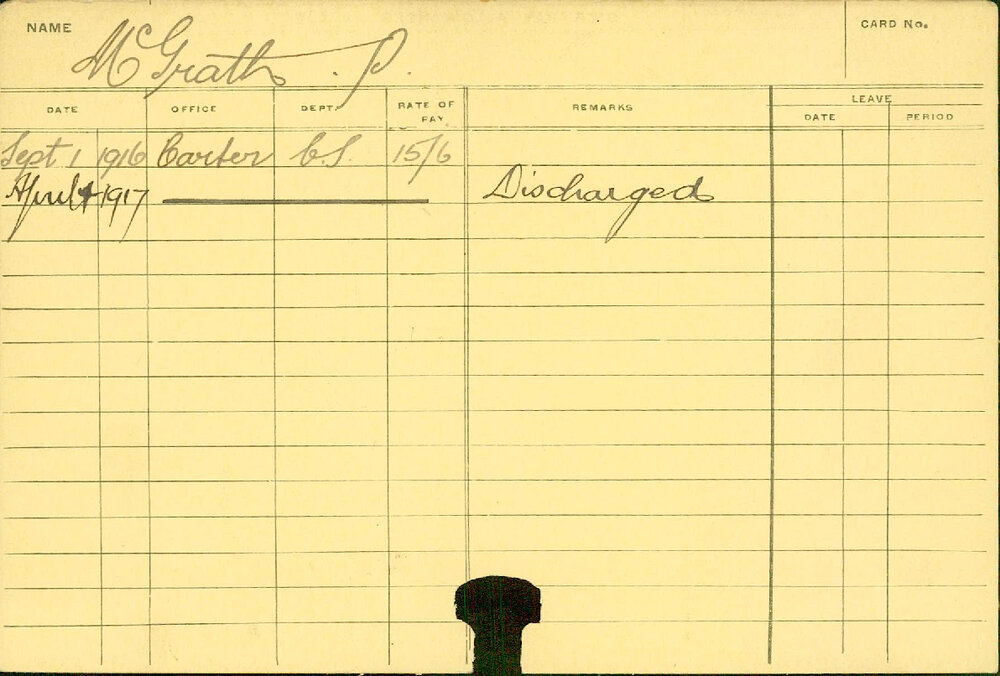 NAME McGrath. P. CARD No.
DATE OFFICE DEPT. RATE OF PAY. REMARKS LEAVE
DATE PERIOD
Sept 1 1916 Carter C.S. 15/6
April 4 1917 Discharged